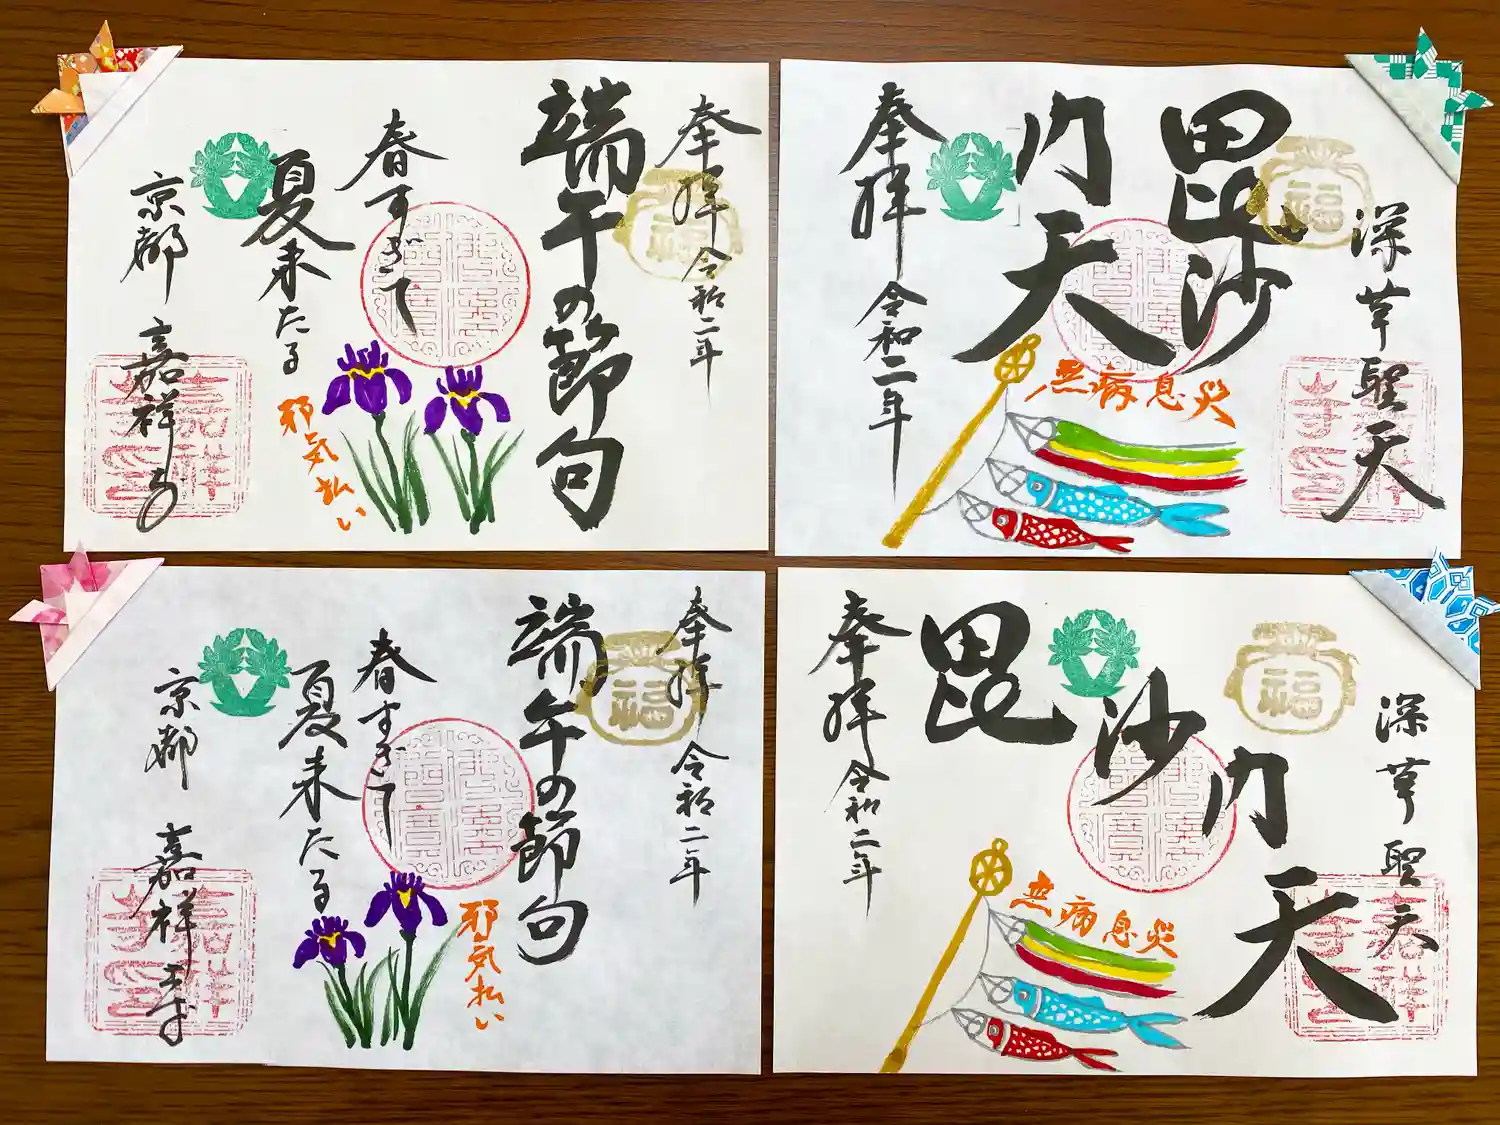 奉拝 令和二年
端午の節句
春すぎて
夏来たる
邪気払い
京都 嘉祥寺
福
深草聖天
毘沙
門天
無病息災
奉拝 令和二年
福
奉拝 令和二年
端午の節句
春すぎて
夏来たる
邪気払い
京都 嘉祥寺
福
深草聖天
毘沙門天
無病息災
奉拝 令和二年
福